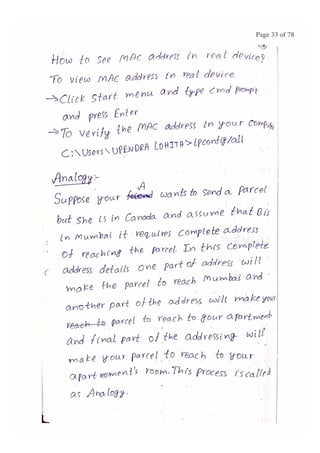 Page 33 of 78
How to see MAC address in real device?
To view MAC address in real device
→Click Start menu and type cmd prompt
and press Enter
→To verify the MAC address in your Computer
C:\Users\UPENDRA LOHITH>ipconfig/all
Analogy:-
A
Suppose your friend wants to send a parcel
but she is in Canada and assume that B is
in Mumbai it requires complete address
of reaching the parcel. In this complete
address details one part of address will
make the parcel to reach Mumbai and
another part of the address will make your
reach to parcel to reach to your apartment
and final part of the addressing will
make your parcel to reach to your
apartment's room. This process is called
as Analogy.